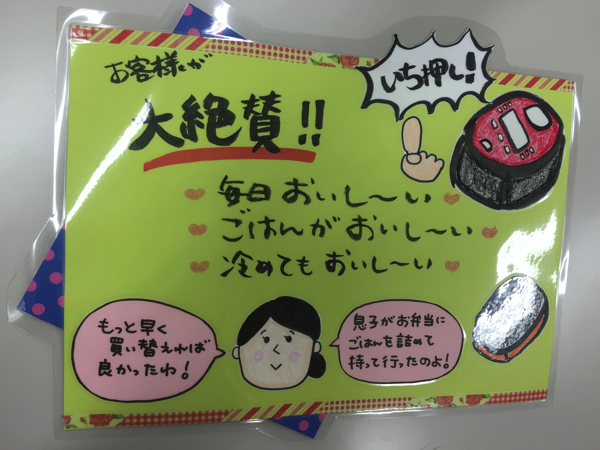 お客様が
いち押し!
大絶賛!!
毎日おいし〜い
ごはんがおいし〜い
冷めてもおいし〜い
もっと早く
買い替えれば
良かったわ!
息子がお弁当に
ごはんを詰めて
持って行ったのよ!